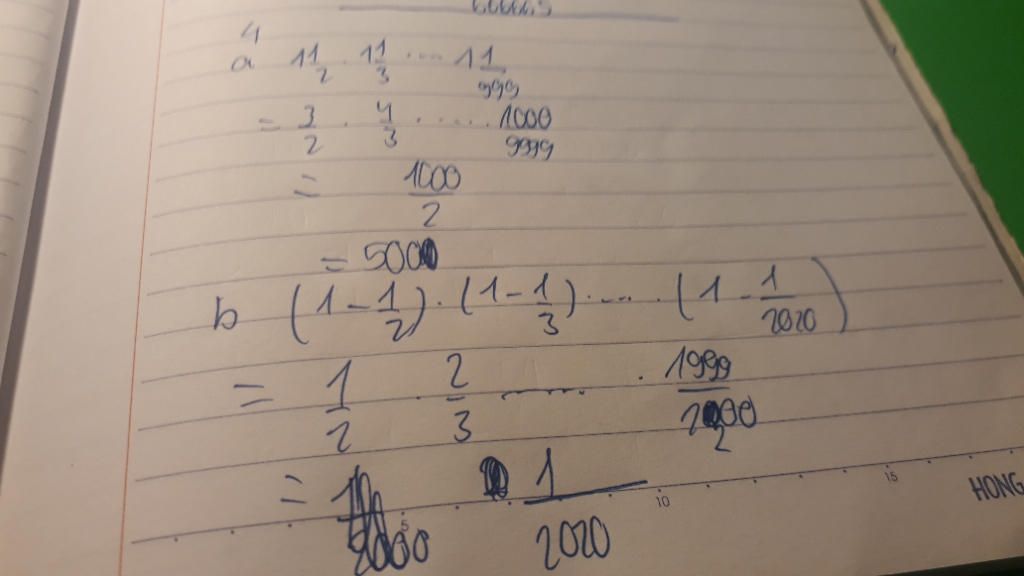 4
a 1 1/2 · 1 1/3 ··· 1 1/999
= 3/2 · 4/3 · ···· 1000/9999
= 1000/2
= 500
b (1 - 1/2) · (1 - 1/3) · ... · (1 - 1/2020)
= 1/2 · 2/3 ........ · 1999/2000
= 1/2020
5 10 15
HONG